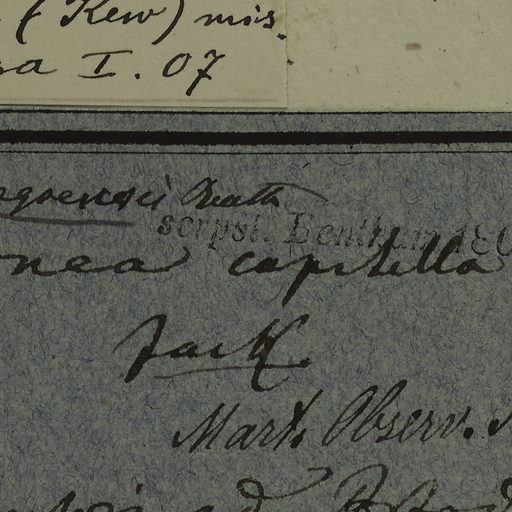 (Kew) mis.
I. 07
Benth
scripst. Bentham 18
nea capitella
Jack
Mart. Observ.
ad